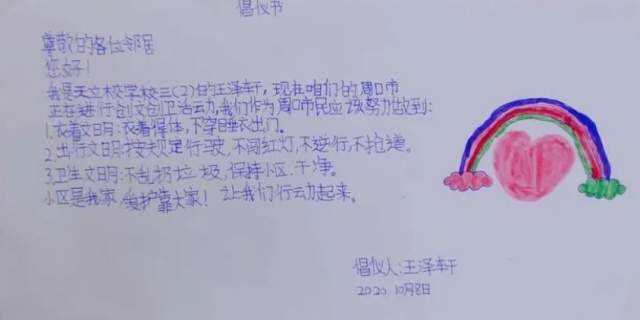 倡仪书
尊敬的各位邻居
您好!
我是天立校学校三(2)的王泽轩,现在咱们的周口市
正在进行创文创卫活动,我们作为周口市民应该努力做到:
1.衣着文明:衣着得体,不穿睡衣出门。
2.出行文明:按规定行驶,不闯红灯,不逆行,不抢道。
3.卫生文明:不乱扔垃圾,保持小区,干净。
小区是我家,爱护靠大家!让我们行动起来。
倡仪人:王泽轩
2020 10月8日